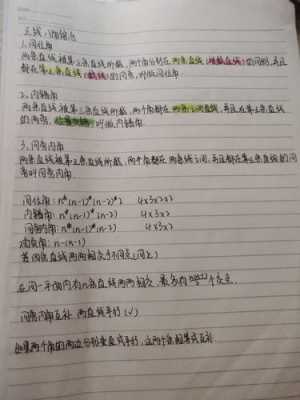 三线八角
1.同位角
两条直线被第三条直线所截,两个角分别在两条直线(被截直线)的同侧,并且
都在第三条直线(截线)的同旁,叫做同位角
2.内错角
两条直线被第三条直线所截,两个角都在两条直线之间,并且在第三条直线
的两旁,叫做内错角
3.同旁内角
两条直线被第三条直线所截,两个角都在两条线之间,并且都在第三条直线的同
旁叫同旁内角
同位角: n*(n-1)*(n-2)*2 4x3x2x2
内错角: n*(n-1)*(n-2) 4x3x2
同旁内角: n*(n-1)*(n-2) 4x3x2
对顶角: n·(n-1)
若n条直线两两相交
在同一平面内有n条直线两两相交,最多有 个交点
同旁内角互补 两直线平行 (√)
如果两个角的两边分别 平行,这两个角相等或互补